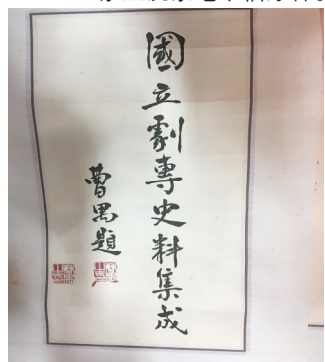 國立劇專史料集成
曹禺題